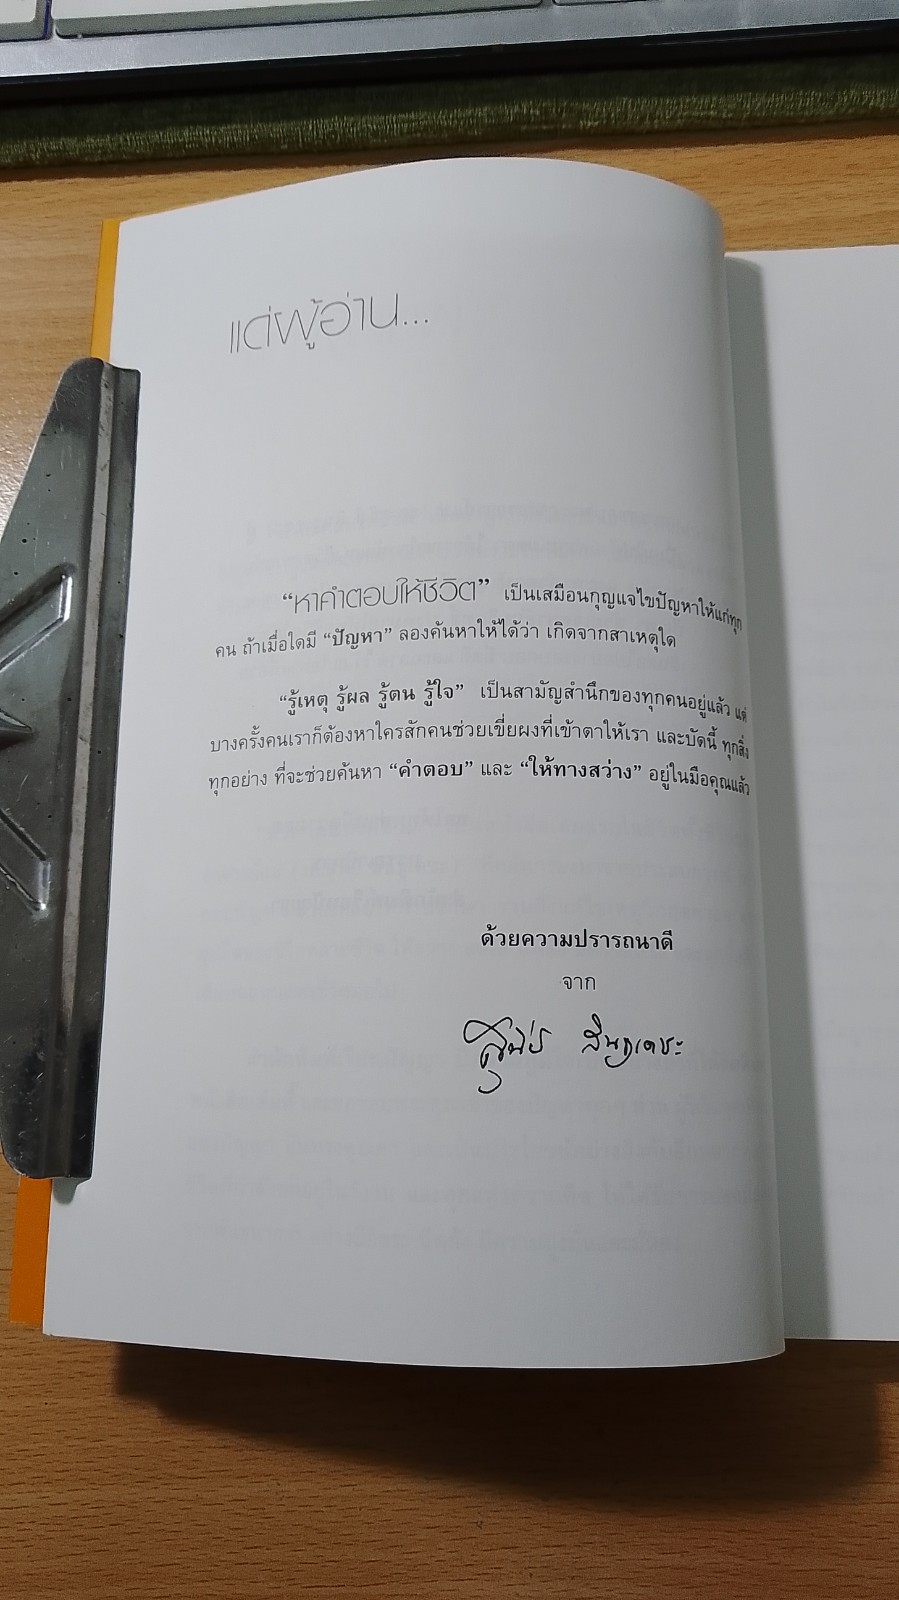 แด่ผู้อ่าน...
“หาคำตอบให้ชีวิต” เป็นเสมือนกุญแจไขปัญหาให้แก่ทุก
คน ถ้าเมื่อใดมี “ปัญหา” ลองค้นหาให้ได้ว่า เกิดจากสาเหตุใด
“รู้เหตุ รู้ผล รู้ตน รู้ใจ” เป็นสามัญสำนึกของทุกคนอยู่แล้ว แต่
บางครั้งคนเราก็ต้องหาใครสักคนช่วยเขี่ยผงที่เข้าตาให้เรา และบัดนี้ ทุกสิ่ง
ทุกอย่าง ที่จะช่วยค้นหา “คำตอบ” และ “ให้ทางสว่าง” อยู่ในมือคุณแล้ว
ด้วยความปรารถนาดี
จาก